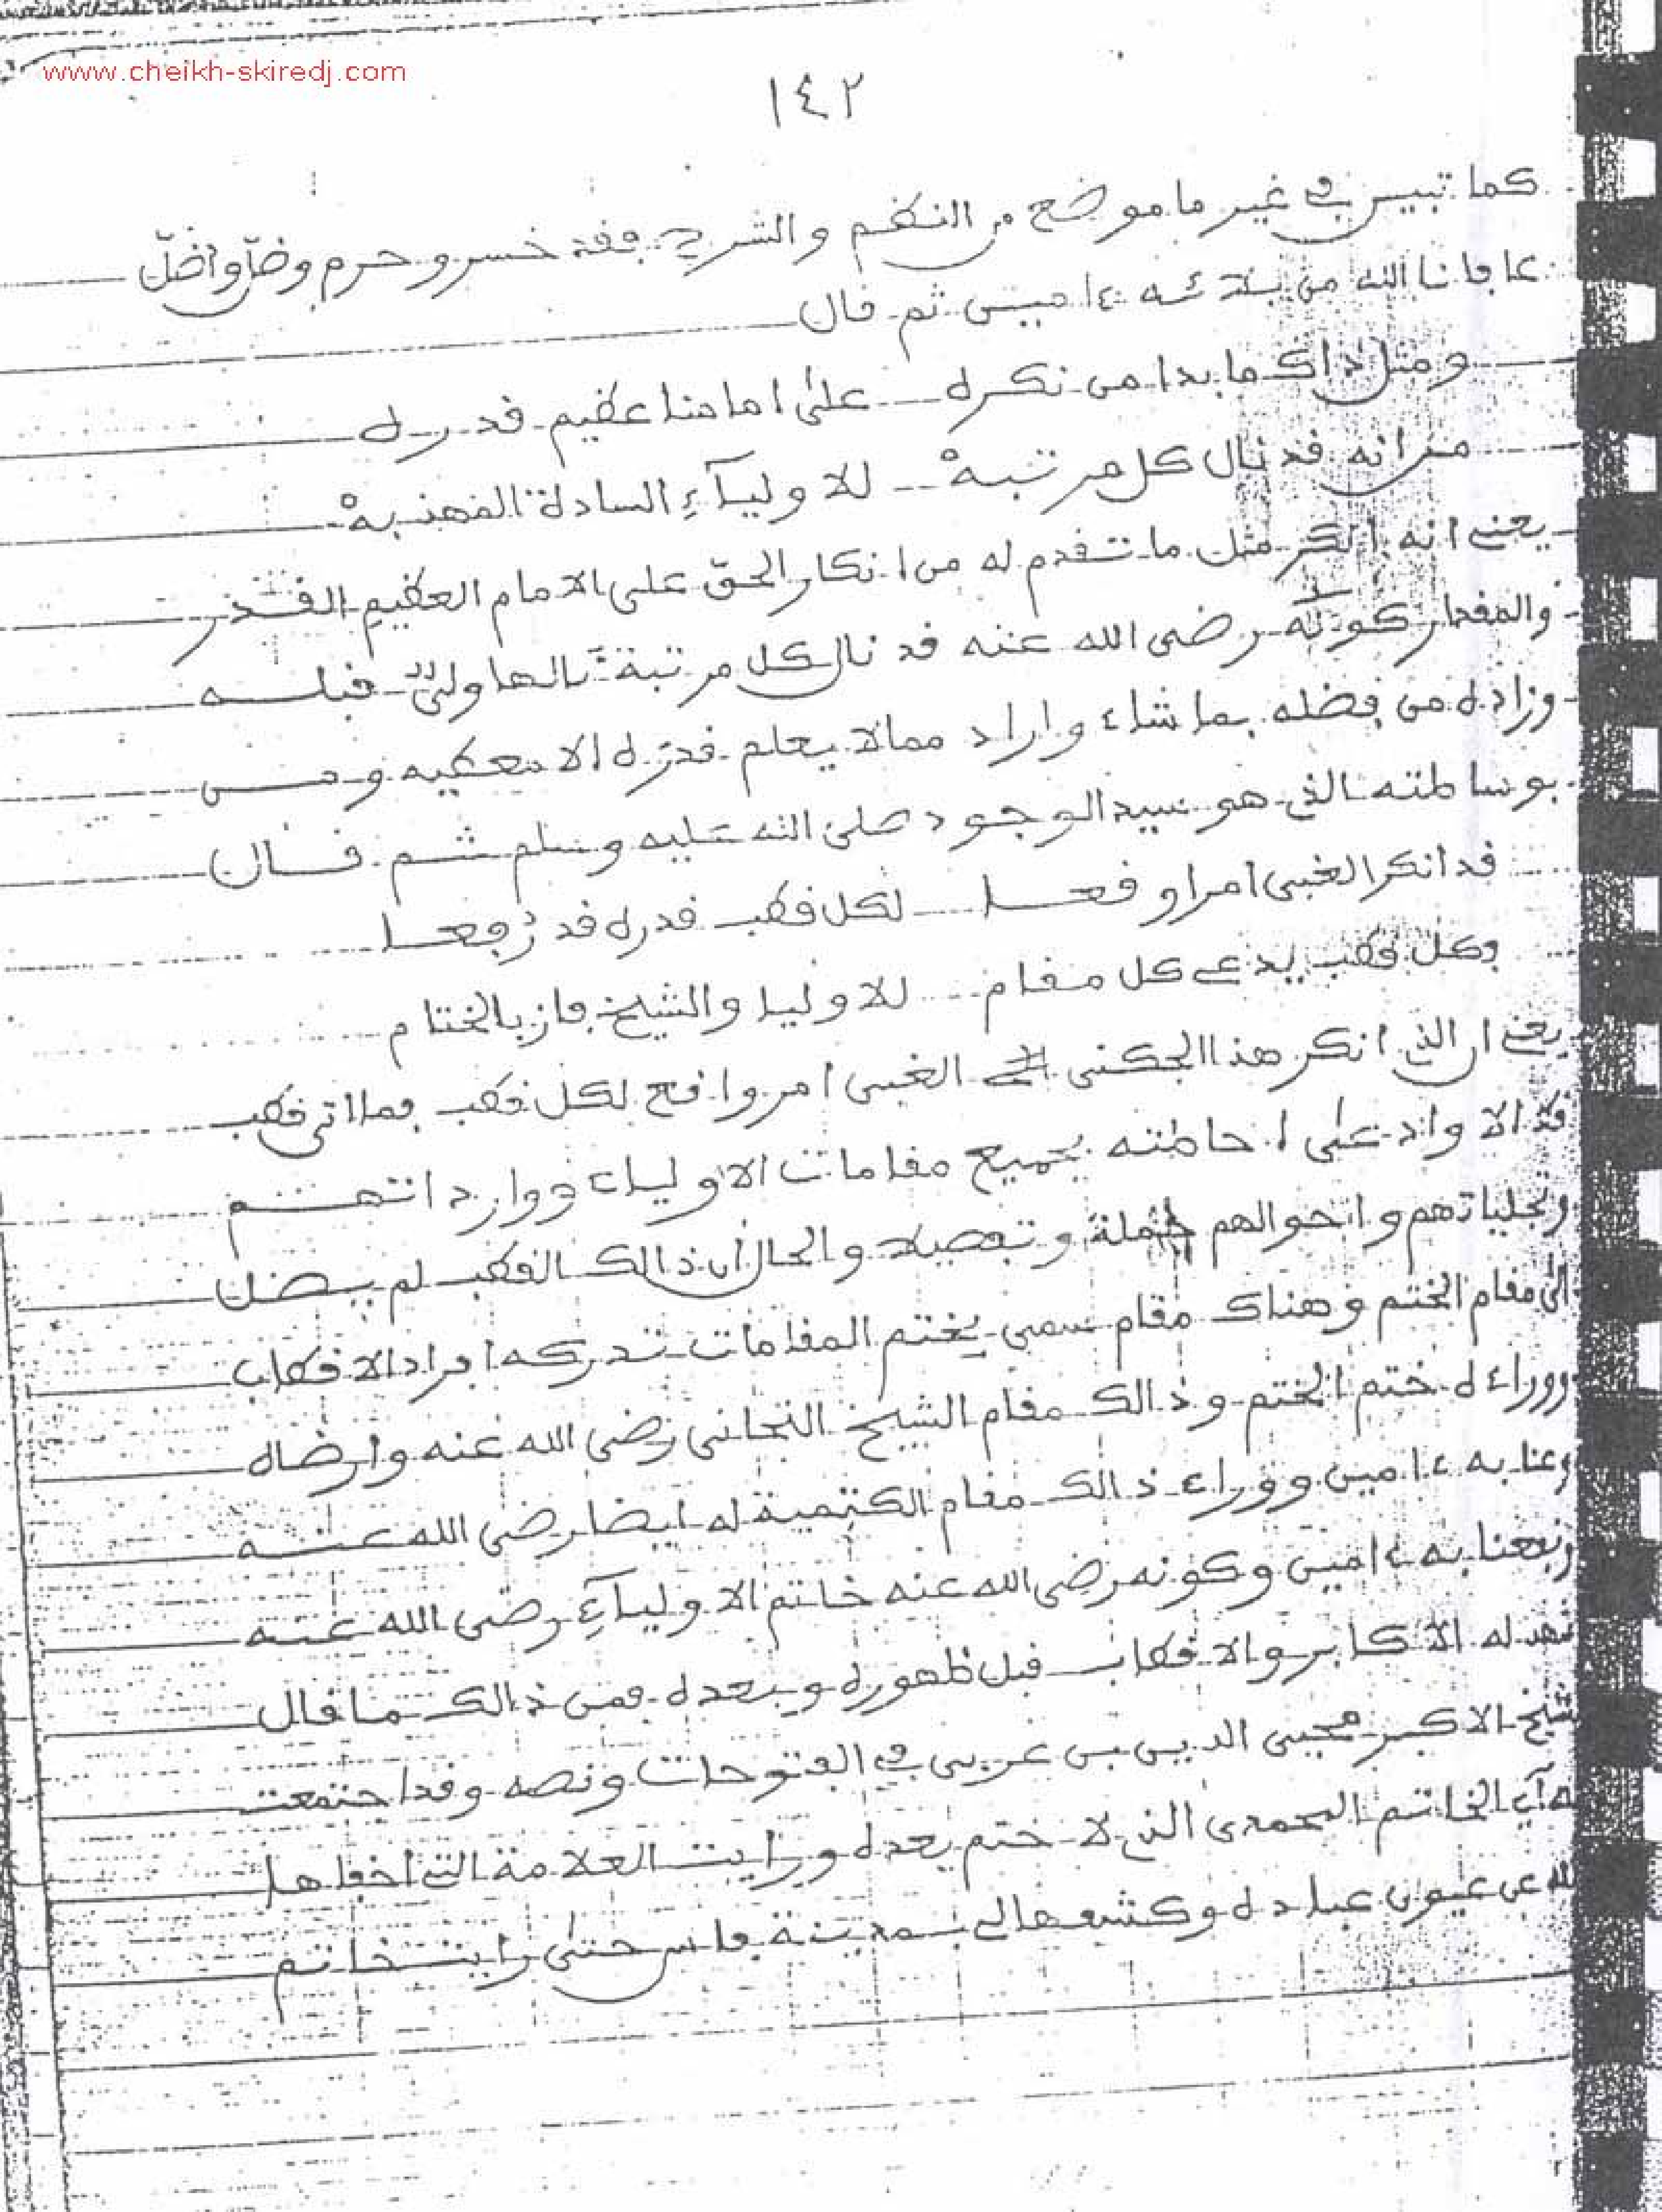 www.cheikh-skiredj.com
١٤٢
كما تبين في غير ما موضع من النظم والشرح فقد خسر وحرم وضلّ واضلّ
عافانا الله من بلائه ءامين ثم قال
ومثل ذاك ما بدا من نكره على امامنا عظيم قدره
من انه قد نال كل مرتبةْ للاوليآءِ السادة المهذبةْ
يعني انه انكر مثل ما تقدم له من انكار الحقّ على الامام العظيم القدر
والمقدار كونه رضي الله عنه قد نال كل مرتبة نالها وليّ قبله
وزاده من فضله بما شاء واراد مما لا يعلم قدره الا معطيه ومن
بوساطته الذي هو سيد الوجود صلى الله عليه وسلم ثم قال
قد انكر الغبي امرا وقعا لكل قطب قدره قد رفعا
وكل قطب يدعي كل مقام للاوليا والشيخ فاز بالختام
يعني ان الذي انكر هذا الجكني الغبي امر واقع لكل قطب فما اتى قطب
قط الا وادعى احاطته بجميع مقامات الاولياء ووارداتهم
وتجلياتهم واحوالهم جملة وتفصيلا والحال ان ذالك القطب لم يصل
الى مقام الختم وهناك مقام سمي بختم المقامات تدركه افراد الاقطاب
ووراءه ختم الختم وذالك مقام الشيخ التجاني رضي الله عنه وارضاه
وعنا به ءامين ووراء ذالك مقام الكتمية له ايضا رضي الله عنه
ونفعنا به ءامين وكونه رضي الله عنه خاتم الاوليآءِ رضي الله عنه
شهد له الاكابر والاقطاب قبل ظهوره وبعده فمن ذالك ما قال
الشيخ الاكبر محيي الدين بن عربي في الفتوحات ونصه وقد اجتمعت
به آي الخاتم المحمدي الذي لا ختم بعده ورايت العلامة التي اخفاها
الله عن عيون عباده وكشفها لي بمدينة فاس حتى رايت خاتم